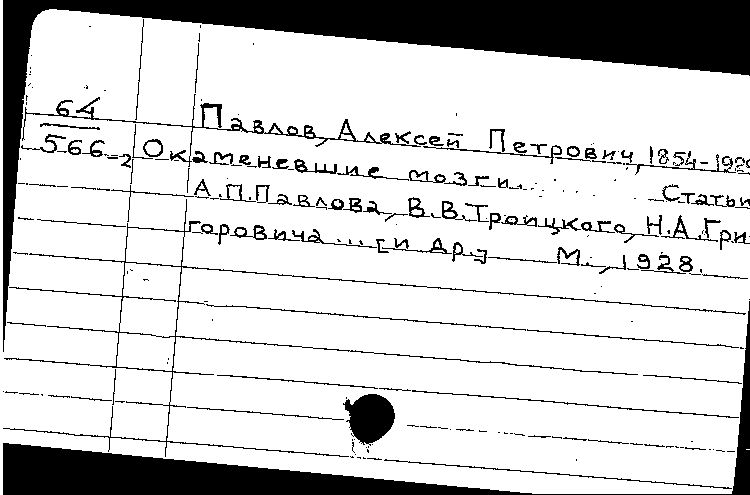 64
566-2
Павлов, Алексей Петрович, 1854-1929
Окаменевшие мозги. Статьи
А.П.Павлова, В.В.Троицкого, Н.А.Гри-
горовича ... [и др.] М., 1928.